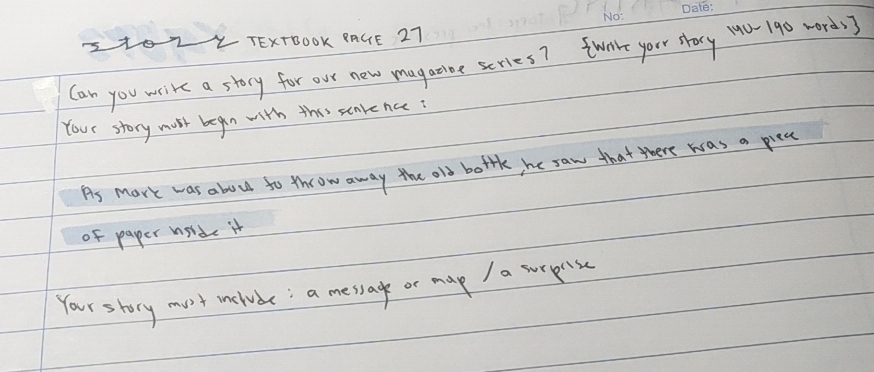 No: Date:
Story TEXTBOOK PAGE 27
Can you write a story for our new magazine series? {Write your story 140-190 words}
Your story must begin with this sentence :
As Mark was about to throw away the old bottle, he saw that there was a piece
of paper inside it
Your story must include : a message or map / a surprise